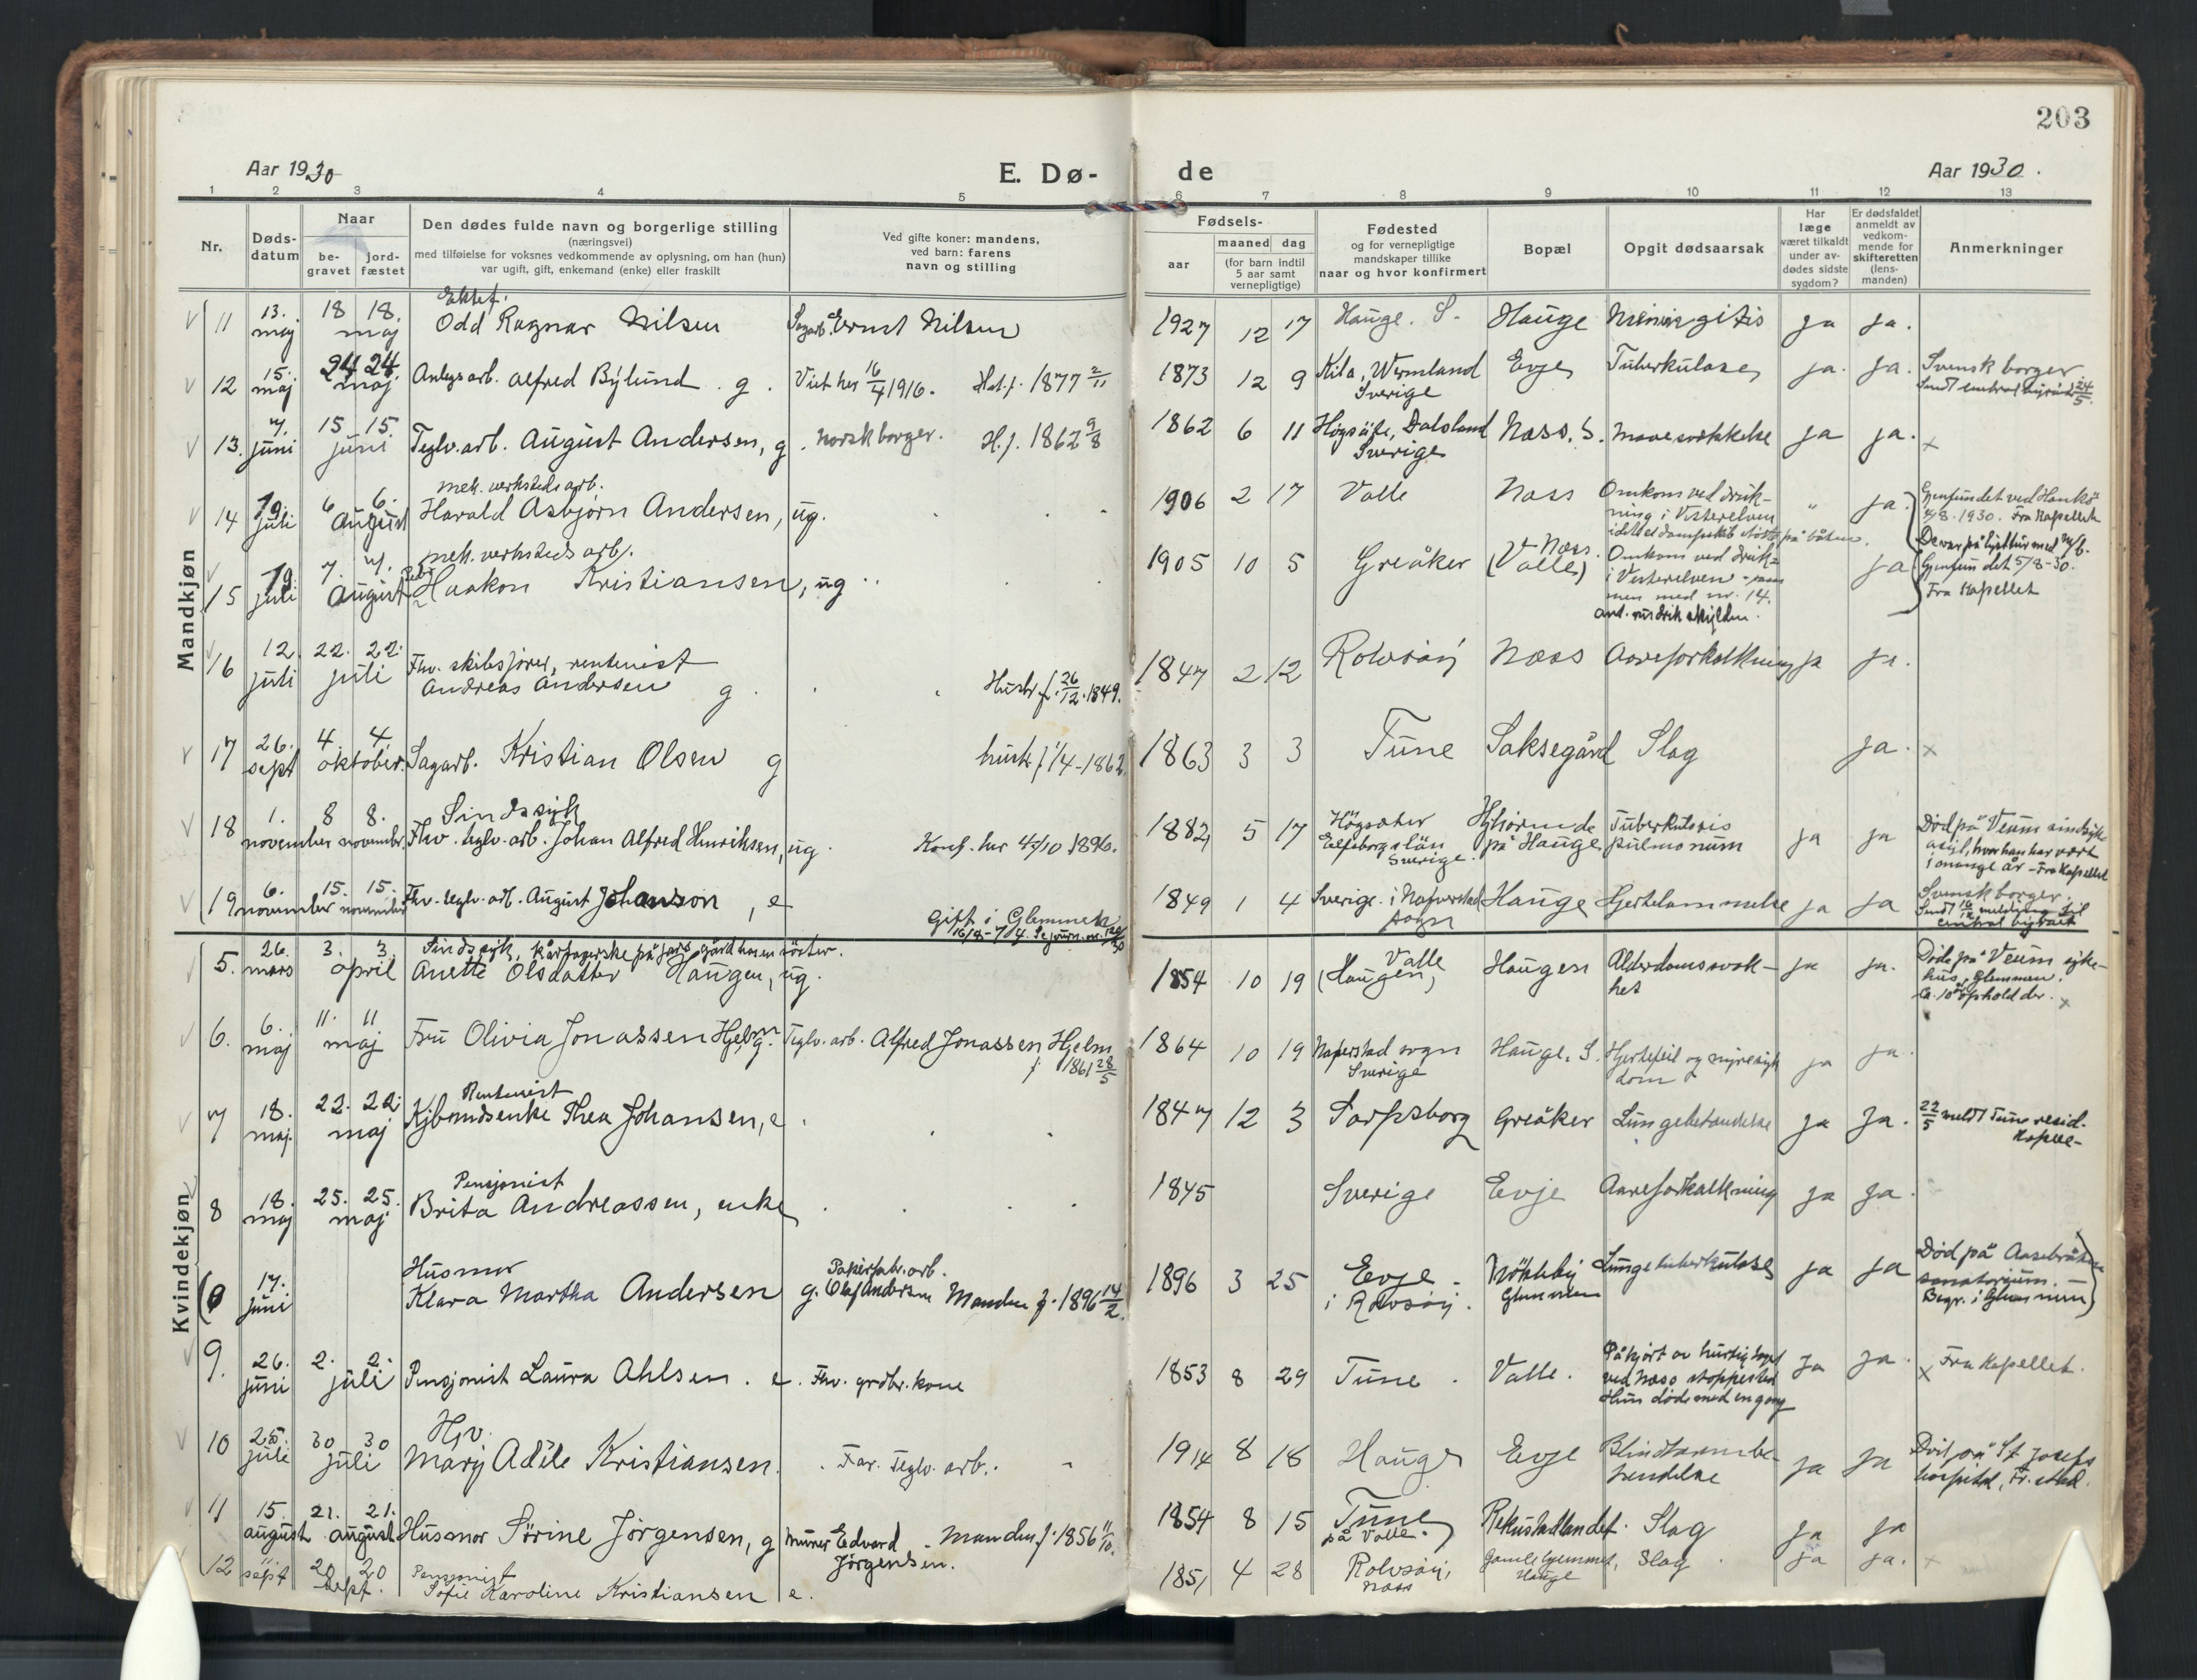 203
Aar 1930
E. Dø-
de
Aar 1930.
1 2 3 4 5 6 7 8 9 10 11 12 13
Nr.
Døds-
datum
Naar
be-
gravet
jord-
fæstet
Den dødes fulde navn og borgerlige stilling
(næringsvei)
med tilføielse for voksnes vedkommende av oplysning, om han (hun)
var ugift, gift, enkemand (enke) eller fraskilt
Ved gifte koner: mandens,
ved barn: farens
navn og stilling
Fødsels-
aar
maaned dag
(for barn indtil
5 aar samt
vernepligtige)
Fødested
og for vernepligtige
mandskaper tillike
naar og hvor konfirmert
Bopæl
Opgit dødsaarsak
Har
læge
været tilkaldt
under av-
dødes sidste
sygdom?
Er dødsfaldet
anmeldt av
vedkom-
mende for
skifteretten
(lens-
manden)
Anmerkninger
Mandkjøn
11 13. maj 18 18. maj Ektef. Odd Ragnar Nilsen Sagarb. Ernst Nilsen 1927 12 17 Hauge. S. Hauge Meningitis ja ja.
12 15. maj 24 24. maj. Anlegsarb. Alfred Bylund . g . Viet her 16/4 1916. Hst. f. 1877 2/11 1873 12 9 Kila, Wermland
Sverige Evje Tuberkulose ja. ja. Svensk borger.
Sendt central byrået 24/5.
13. 7. juni 15 15. juni Teglv. arb. August Andersen, g . Norsk borger. H. f. 1862 9/8 1862 6 11 Högsäte, Dalsland
Sverige Næss. S. Mavesvekkelse ja ja. x
14 19. juli 6 6. August mek. verksteds arb.
Harald Asbjørn Andersen, ug. 1906 2 17 Valle Næss Omkom ved druk-
ning i Vesterelven
idet et dampskib støtte på båten. " ja. Gjenfundet ved Hankø
4/8. 1930. Fra Kapellet
De var på lysttur med m/b.
15 19. juli 7. 7. August mek. verksteds arb.
Haakon Kristiansen, ug 1905 10 5 Greåker Næss.
(Valle) Omkom ved druk-
i Vesterelven - sam
men med nr. 14. ja Gjenfundet 5/8-30.
Fra Kapellet
16 12. juli 22. 22. juli Fhv. skibsfører, rentenist
Andreas Andersen g . Hustr. f. 26/12. 1849. 1847 2 12 Rolvsøy Næss Aareforkalkning ja ja.
17 26. sept 4. 4. oktober. Sagarb. Kristian Olsen g hustr. f. 1/4-1862. 1863 3 3 Tune Saksegård Slag ja. x
18 1. november 8 8. november. Sindssyk
Fhv. teglv. arb. Johan Alfred Henriksen, ug. Konf. her 4/10 1896. 1882 5 17 Högsäter
Elfsborgs län
Sverige. Hjhørende
på Hauge Tuberkulosis
pulmonum ja ja Død på Veum sindsyke
asyl, hvor han har vært
i mange år - Fra Kapellet
19 6. november 15. 15. november Fhv. teglv. arb. August Johanson, e 1849 1 4 Sverige. i Naverstad
sogn Hauge Hjertelammelse ja ja Svensk borger.
Gift i Glemmen
Kvindekjøn
5. 26. mars 3. 3. april Sindssyk,
Anette Olsdatter Haugen, ug. 1854 10 19 Valle
(Haugen) Haugen Alderdomssvak-
het ja ja. Døde på Veum syke-
hus, Glemmen.
Ca. 10 års ophold der. x
6. 6. maj 11. 11 maj Fru Olivia Jonassen Hjelm g. Teglv. arb. Alfred Jonassen Hjelm
f. 1861 28/5 1864 10 19 Naverstad sogn
Sverige Hauge. S. Hjertefeil og nyresyk
dom ja ja.
7 18. maj. 22. 22. maj Rentenist
Kjbmndsenke Thea Johansen, e . 1847 12 3 Sarpsborg Greåker Lungebetændelse ja Ja. 22/5 meldt Tune resid.
kapel-
8 18. maj 25. 25. maj Pensjonist
Brita Andreassen, enke 1845 Sverige Evje Aareforkalkning ja ja.
0 17. juni Husmor
Klara Martha Andersen g. Papirfabr. arb.
Olaf Andersen Manden f. 1896 14/2. 1896 3 25 Evje -
i Rolvsøy. Rökkeby
Glemmen Lungetuberkulose ja ja Død på Aasebråten
sanatorium. -
Begr. i Glemmen
9. 26. juni 2. 2. juli Pensjonist Laura Ahlsen . e. Fhv. grdbr. kone 1853 8 29 Tune . Valle. Påkjørt av hurtigtoget
ved Næss stoppested
Hun døde med en gang Ja ja. x Fra Kapellet.
10 25. juli 30 30 juli Hjv.
Mary Adèle Kristiansen. . Far. Teglv. arb. . 1914 8 18 Hauge Evje Blindtarmbe-
tendelse ja ja Død på St. Josefs
hospital, Fr. stad.
11 15. august 21. 21. august Husmor Sørine Jørgensen, g Murer Edvard
Jørgensen. Manden f. 1856 11/10. 1854 8 15 Tune
på Valle. Rekustadlandet. Slag ja ja
12 11 sept 20 20 sept. Pensjonist
Sofie Karoline Kristiansen e. 1851 4 28 Rolvsøy,
Næss Gamlehjemmet,
Hauge Slag ja ja. x